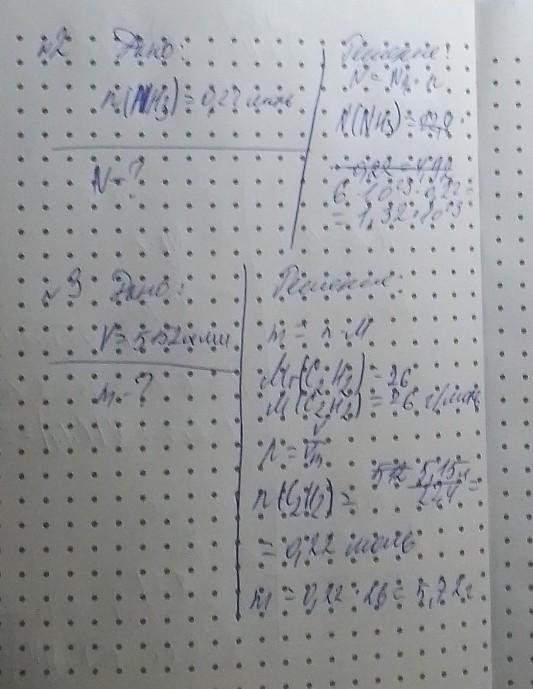 №2 Дано:
n(NH₃) = 0,22 моль
N - ?
Решение:
N = Nₐ · n
N(NH₃) =
6 · 10²³ · 0,22 =
= 1,32 · 10²³
№3 Дано:
m - ?
Решение:
m = n · M
Mr(C₂H₂) = 26
M(C₂H₂) = 26 г/моль
n = V/Vm
n(C₂H₂) =
= 0,22 моль
m = 0,22 · 26 = 5,72 г